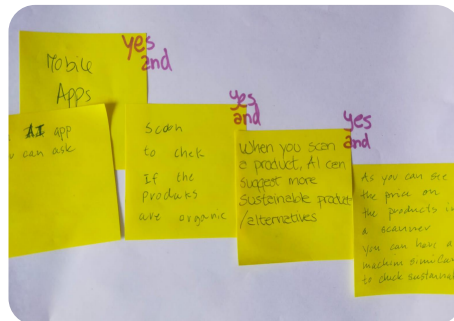 Mobile
Apps
yes
and
AI app
can ask
Scan
to chek
If the
produkts
are organic
yes
and
When you scan
a product, AI can
suggest more
sustainable product
/alternatives
yes
and
As you can see
the price on
the products in
a scanner
you can have a
machine similar
to check sustainab